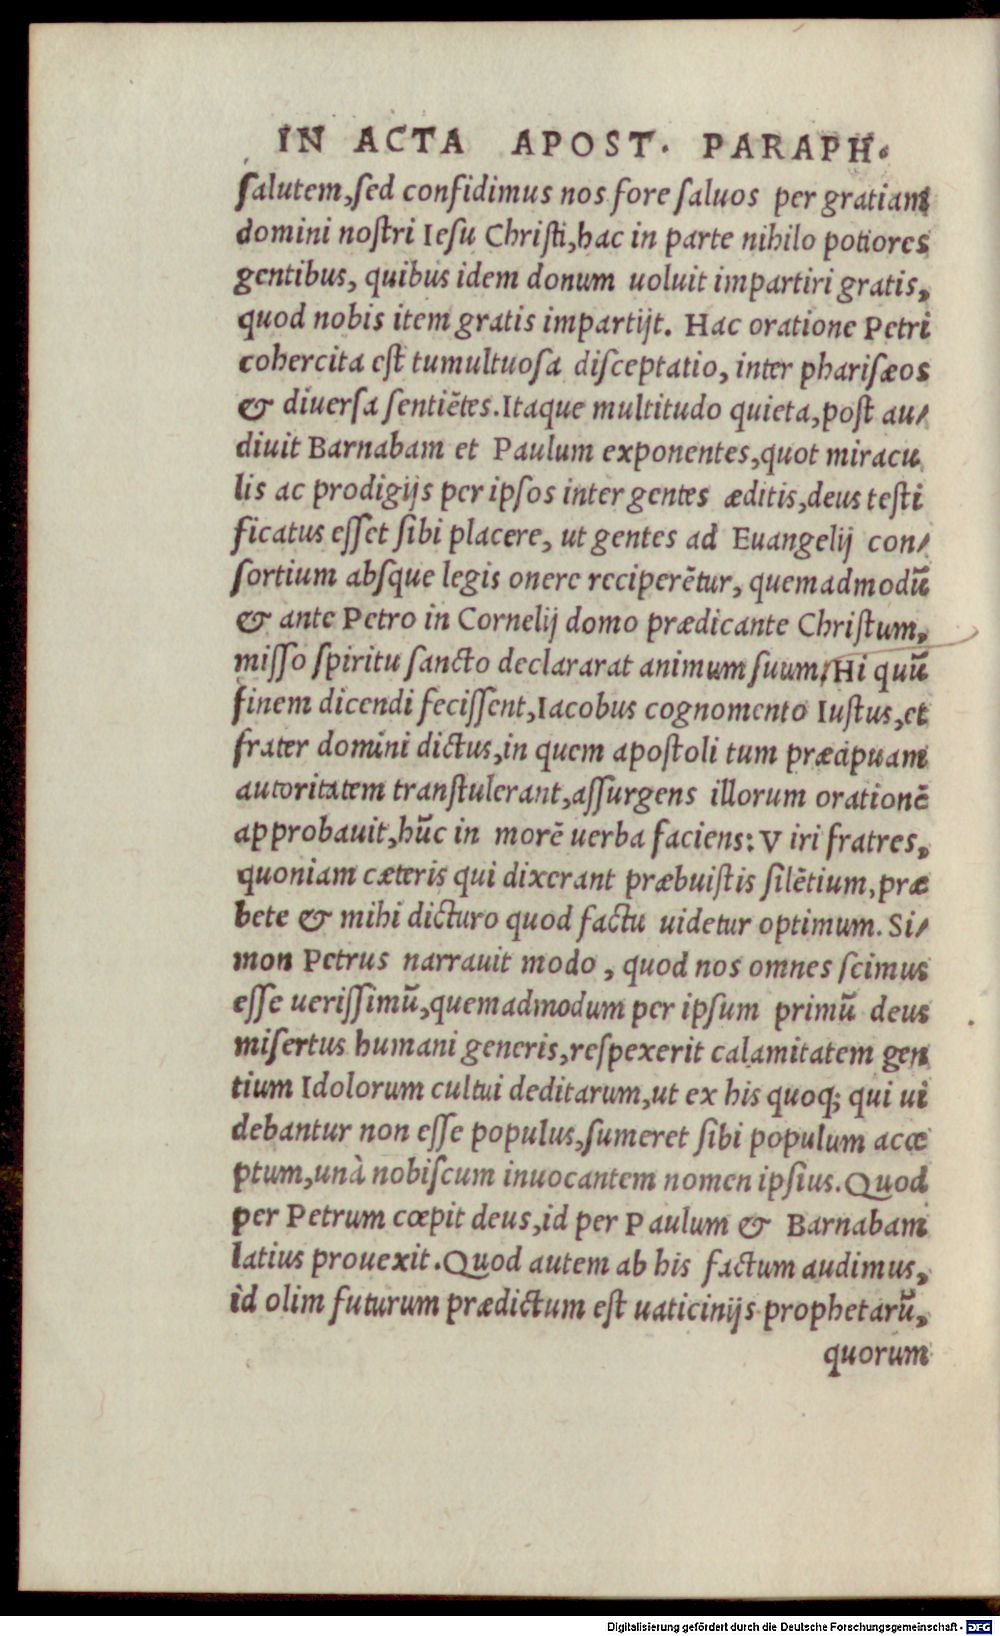 IN ACTA APOST. PARAPH.
ſalutem,ſed confidimus nos fore ſaluos per gratiam
domini noſtri Ieſu Chriſti,hac in parte nihilo potiores
gentibus, quibus idem donum uoluit impartiri gratis,
quod nobis item gratis impartijt. Hac oratione Petri
cohercita eſt tumultuoſa diſceptatio, inter phariſæos
& diuerſa ſentiẽtes.Itaque multitudo quieta,poſt au/
diuit Barnabam et Paulum exponentes,quot miracu
lis ac prodigijs per ipſos inter gentes æditis,deus teſti
ficatus eſſet ſibi placere, ut gentes ad Euangelij con/
ſortium abſque legis onere reciperẽtur, quemadmodũ
& ante Petro in Cornelij domo prædicante Chriſtum,
miſſo ſpiritu ſancto declararat animum ſuum. Hi quũ
finem dicendi feciſſent,Iacobus cognomento Iuſtus,et
frater domini dictus,in quem apoſtoli tum præcipuam
autoritatem tranſtulerant,aſſurgens illorum orationẽ
approbauit,hũc in morẽ uerba faciens: V iri fratres,
quoniam cæteris qui dixerant præbuiſtis ſilẽtium,præ
bete & mihi dicturo quod factu uidetur optimum. Si/
mon Petrus narrauit modo , quod nos omnes ſcimus
eſſe ueriſſimũ,quemadmodum per ipſum primũ deus
miſertus humani generis,reſpexerit calamitatem gen
tium Idolorum cultui deditarum,ut ex his quoq; qui ui
debantur non eſſe populus,ſumeret ſibi populum acce
ptum,unà nobiſcum inuocantem nomen ipſius.Quod
per Petrum cœpit deus,id per Paulum & Barnabam
latius prouexit.Quod autem ab his factum audimus,
id olim futurum prædictum eſt uaticinijs prophetarũ,
quorum
Digitalisierung gefördert durch die Deutsche Forschungsgemeinschaft - DFG